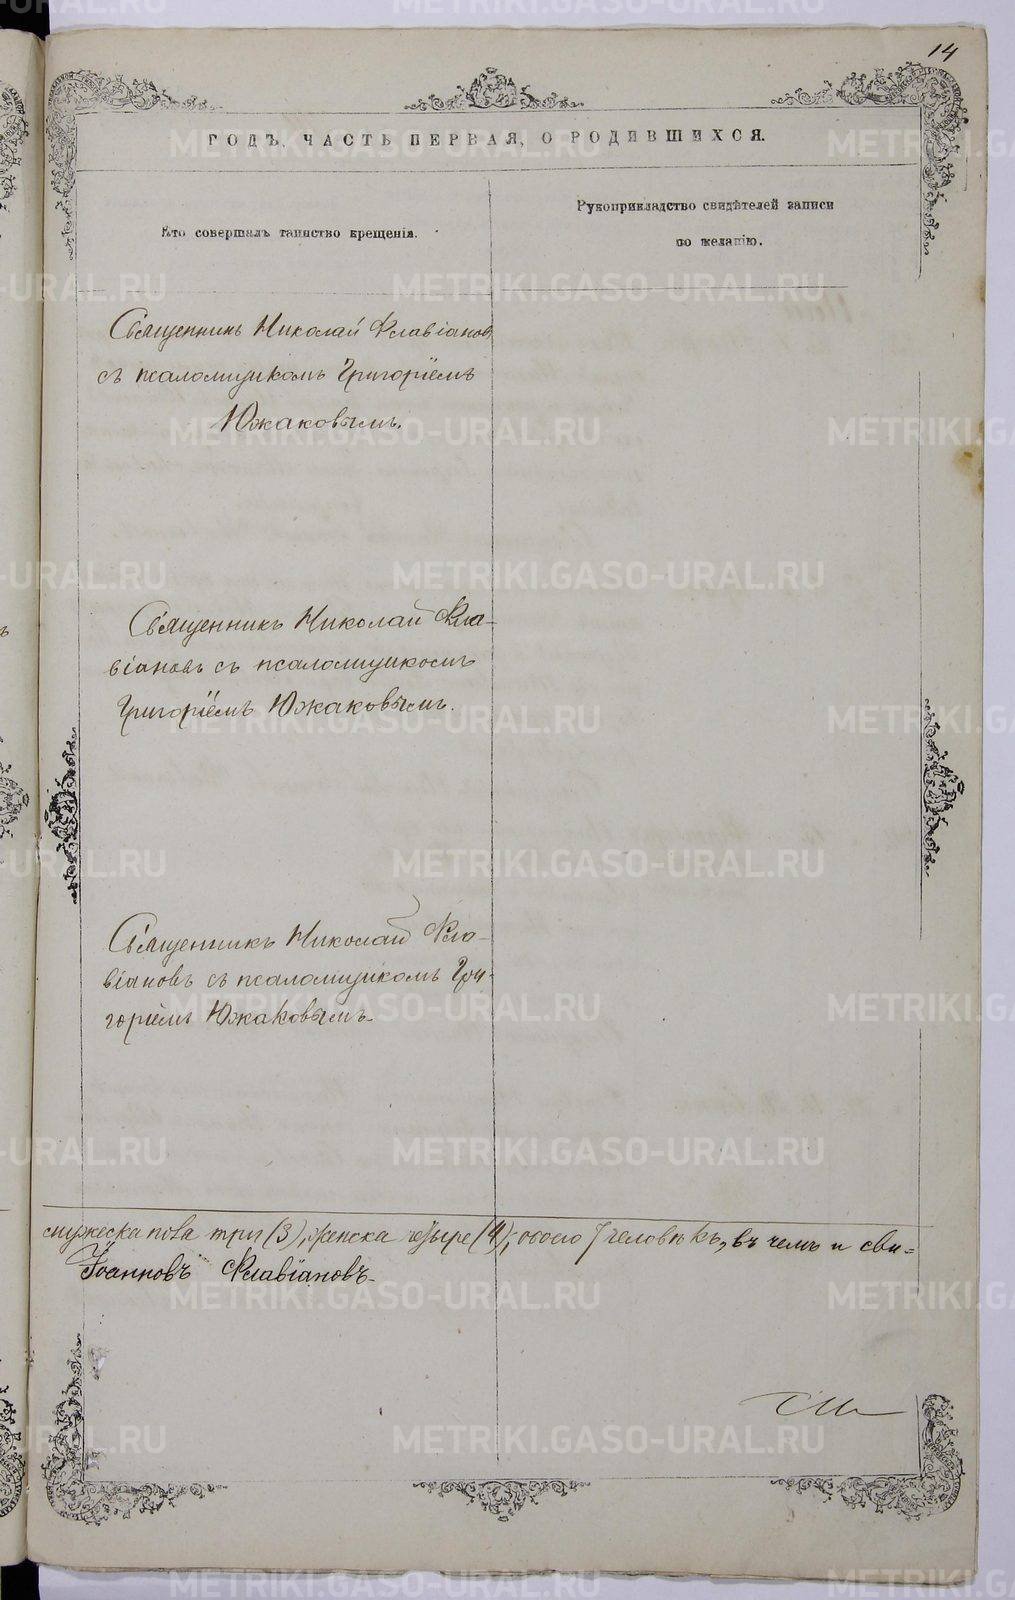 14
ГОДЪ, ЧАСТЬ ПЕРВАЯ, О РОДИВШИХСЯ.
Кто совершалъ таинство крещенія.
Рукоприкладство свидѣтелей записи
по желанію.
Священникъ Николай Флавіановъ
съ псаломщикомъ Григоріемъ
Южаковымъ.
Священникъ Николай Фла-
віановъ съ псаломщикомъ
Григоріемъ Южаковымъ.
Священникъ Николай Фла-
віановъ съ псаломщикомъ Гри-
горіемъ Южаковымъ.
мужеска пола три (3), женска четыре (4), обоего 7 человѣкъ, въ чемъ и сви=
Іоанновъ Флавіановъ.
METRIKI.GASO-URAL.RU